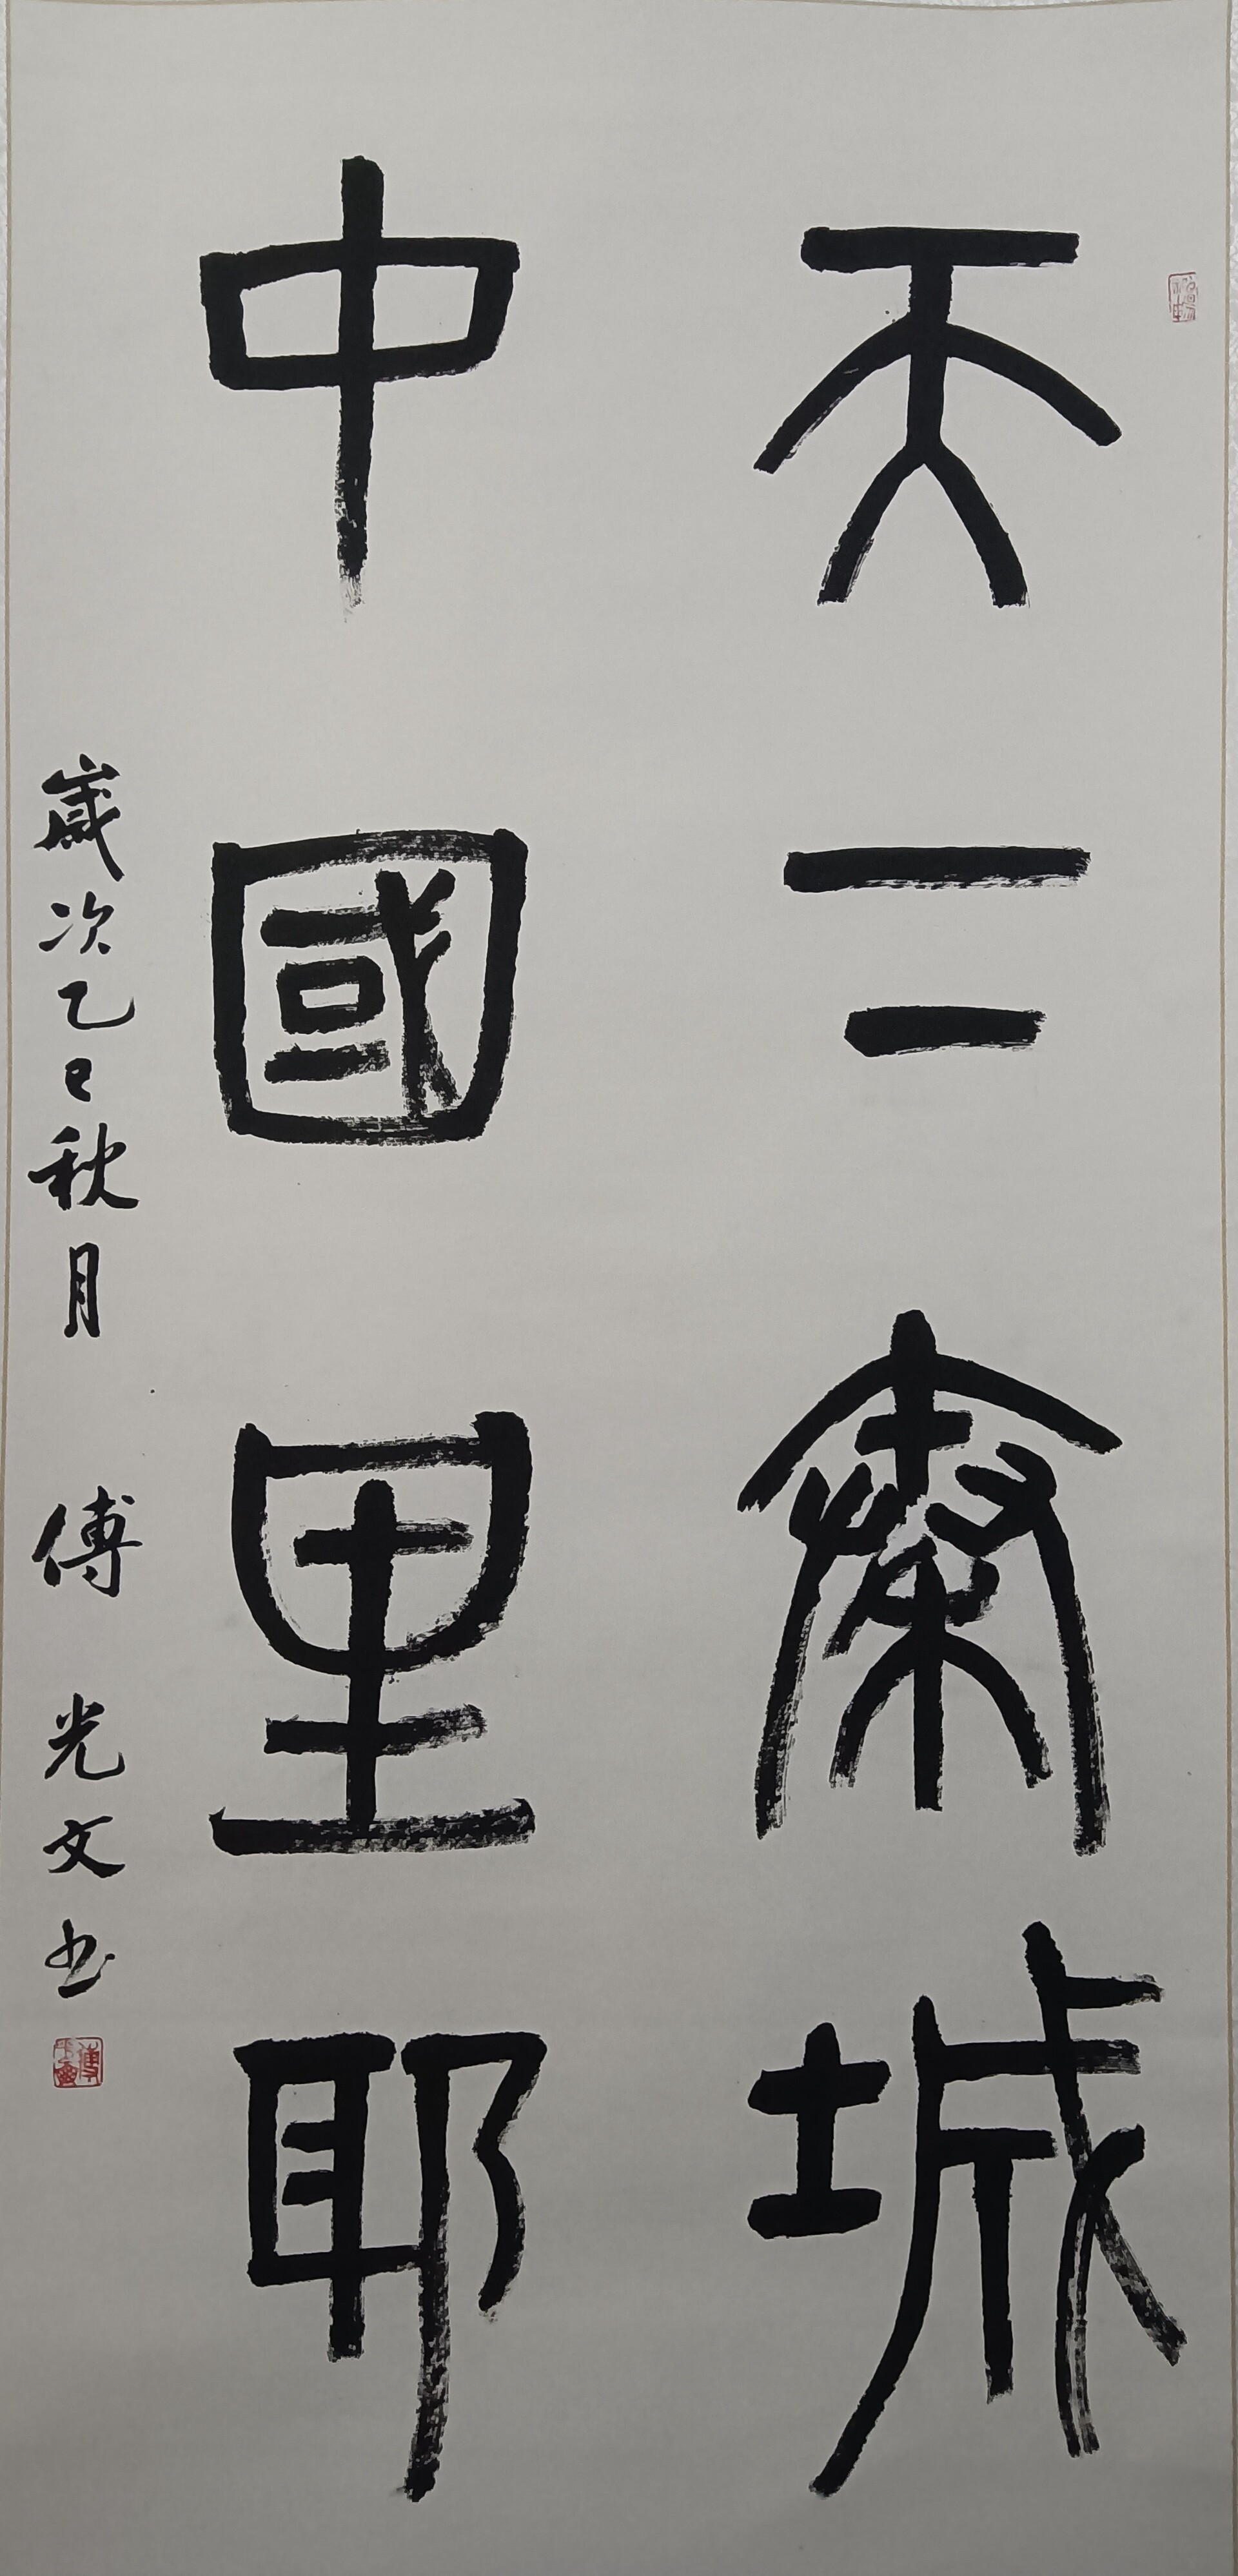 天下秦城
中國里耶
歲次乙巳秋月 傅光文书